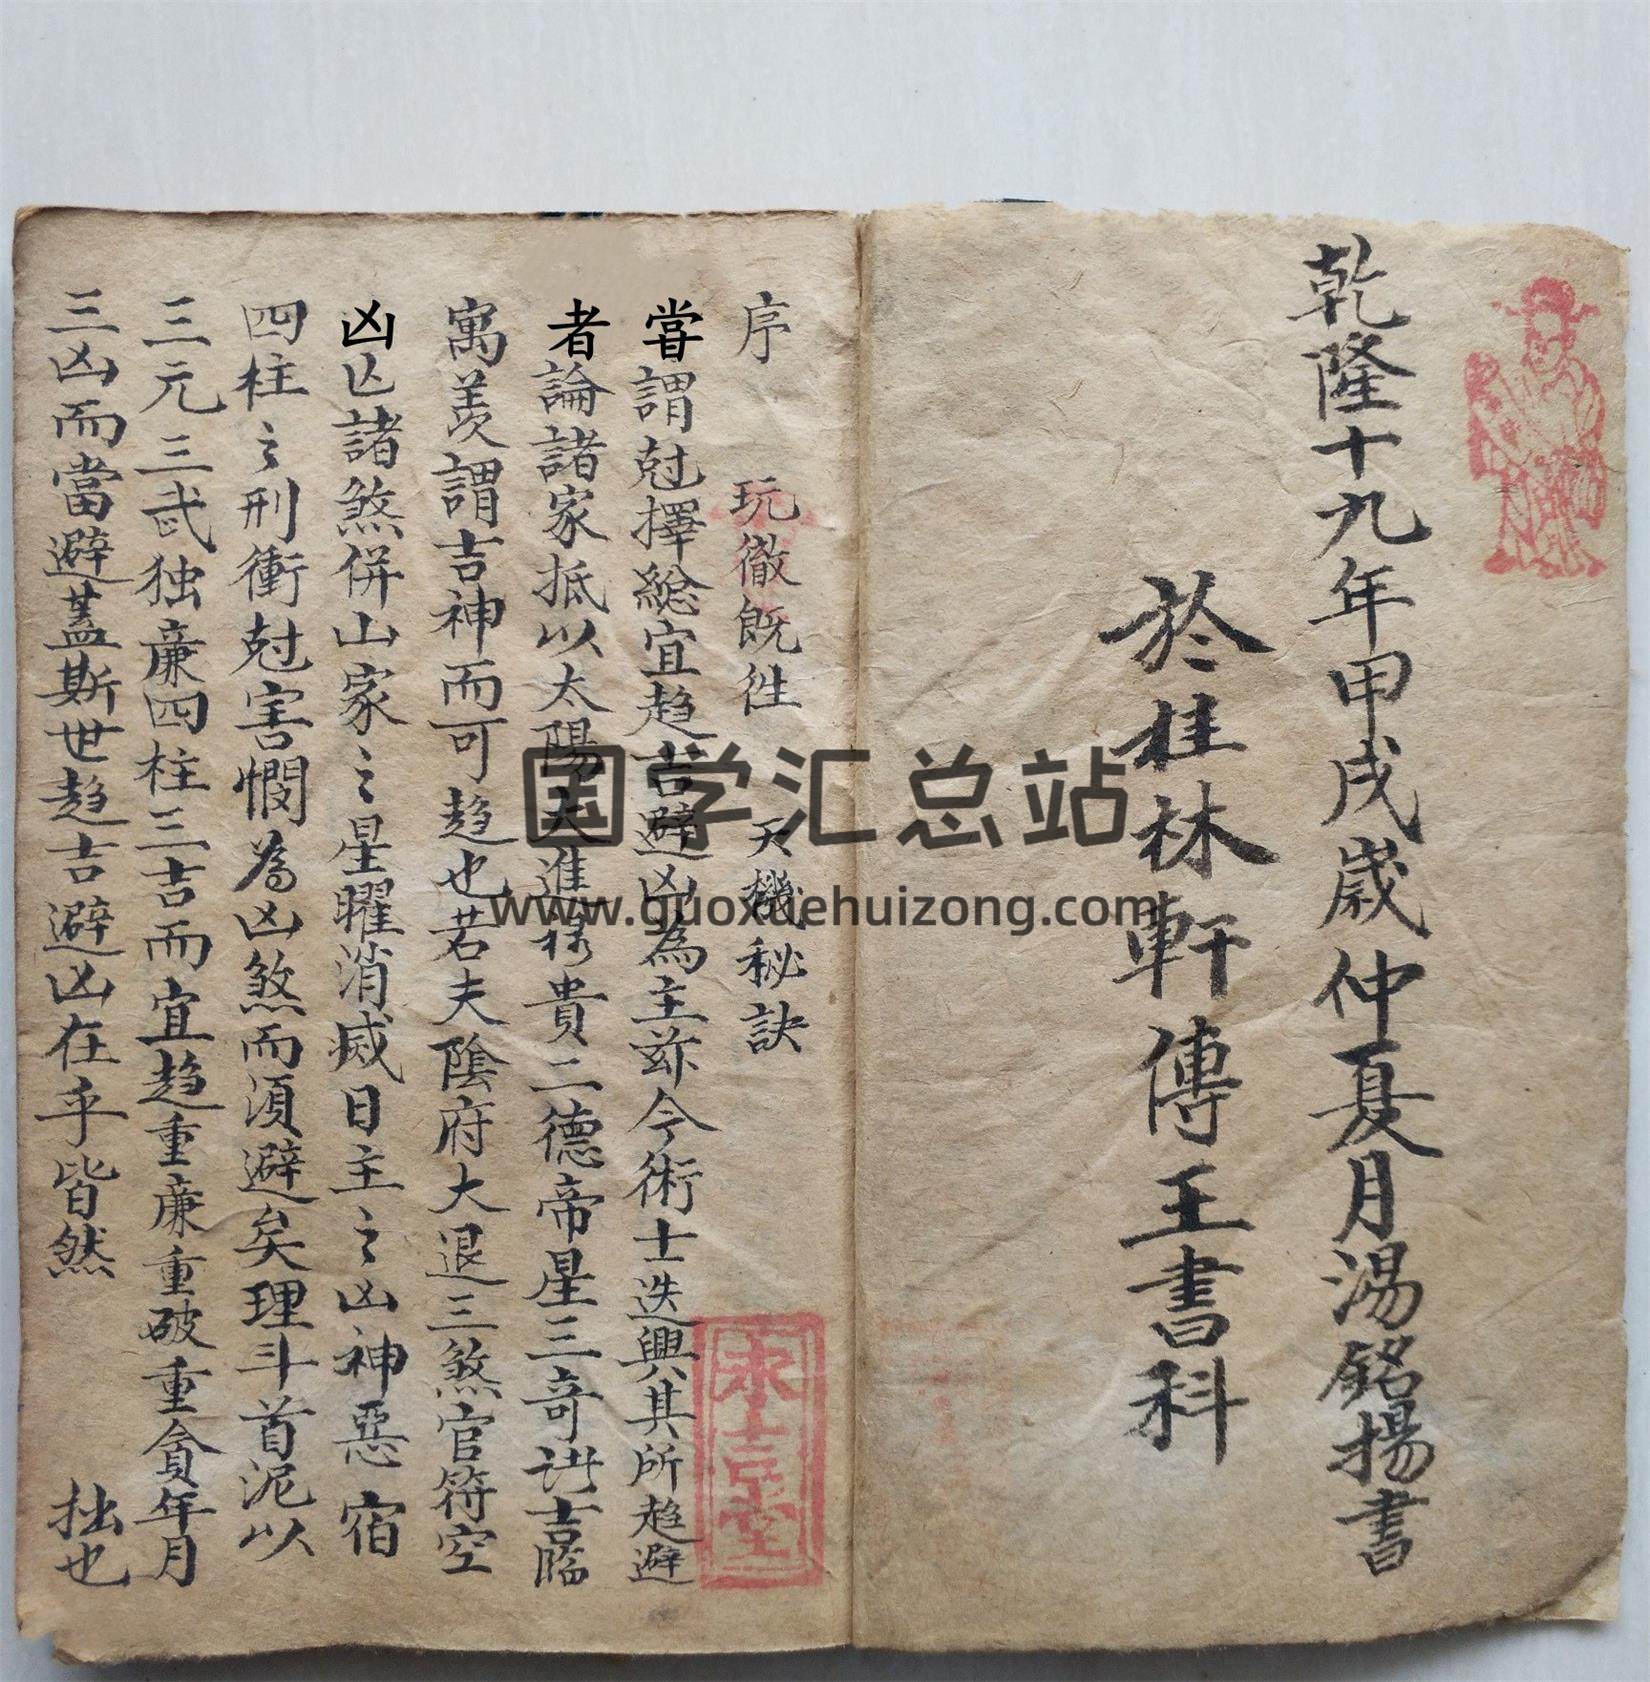 乾隆十九年甲戌歲仲夏月湯銘揚書
於桂林軒傳王書科
序 玩徹既徃 天機秘訣
嘗謂尅擇總宜趋吉避凶為主兹今術士迭興其所趋避
者論諸家抵以太陽大進禄貴二德帝星三竒諸吉臨
寓羙謂吉神而可趋也若夫陰府大退三煞官符空
凶亡諸煞併山家之星曜消烕日主之凶神惡宿
四柱之刑衝尅害憫為凶煞而湏避矣理斗首泥以
三元三武独廉四柱三吉而宜趋重廉重破重貪年月
三凶而當避蓋斯世趋吉避凶在乎皆然 拙也
国学汇总站
www.guoxuehuizong.com